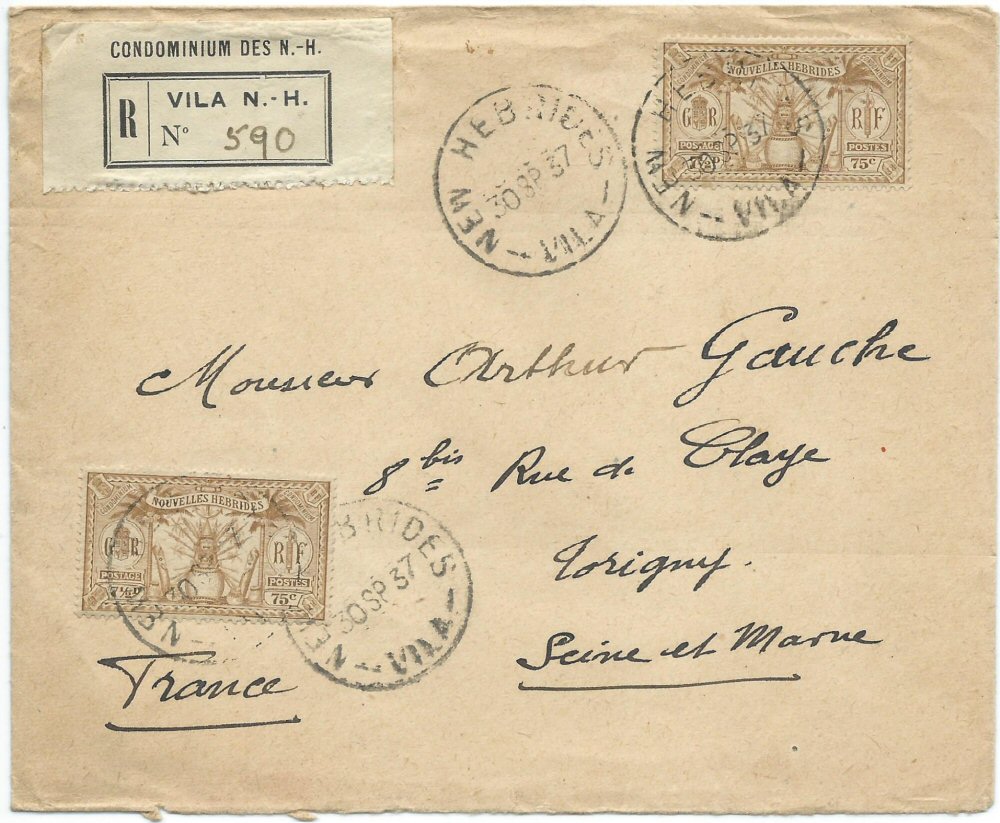 CONDOMINIUM DES N.-H.
R VILA N.-H.
Nº 590
NEW HEBRIDES
30 SP 37
VILA
NOUVELLES HEBRIDES
CONDOMINIUM
G R
R F
POSTAGE
POSTES
7½P 75c
NEW HEBRIDES
30 SP 37
VILA
Monsieur Arthur Gauche
8 bis Rue de Claye
Torigny.
Seine et Marne
France
NOUVELLES HEBRIDES
CONDOMINIUM
G R
R F
POSTAGE
POSTES
7½D 75c
NEW HEBRIDES
30 SP 37
VILA